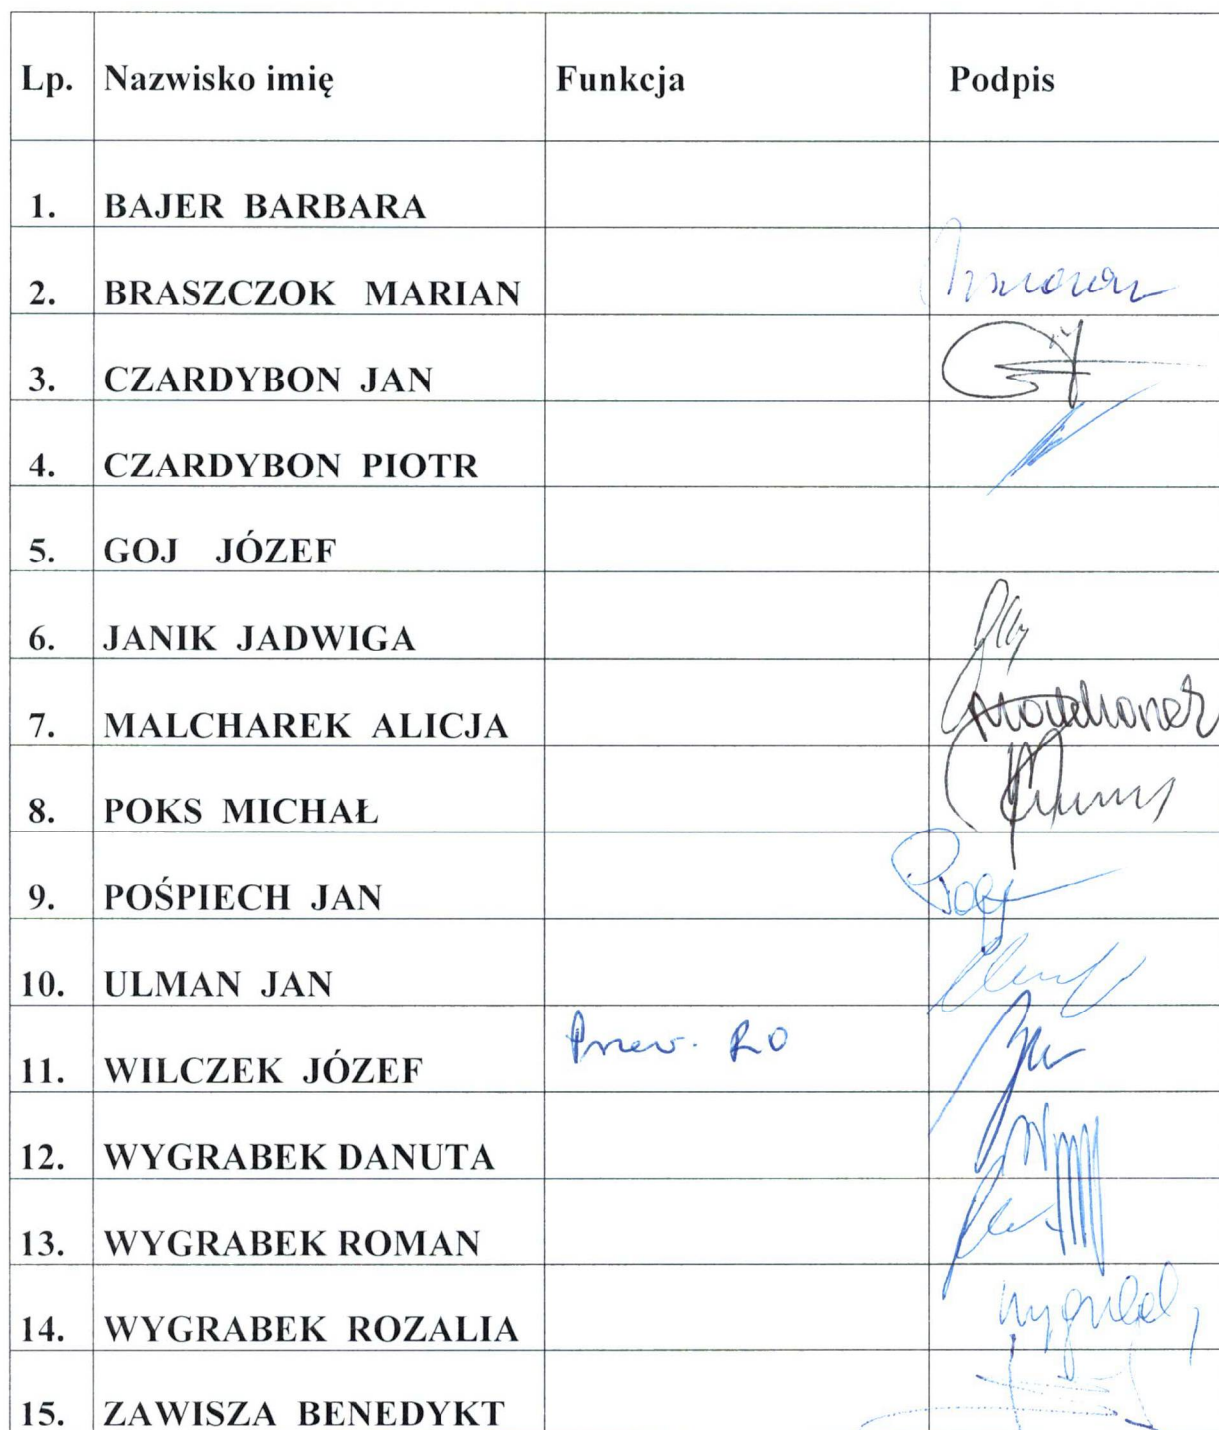 Lp. Nazwisko imię Funkcja Podpis
1. BAJER BARBARA
2. BRASZCZOK MARIAN
3. CZARDYBON JAN
4. CZARDYBON PIOTR
5. GOJ JÓZEF
6. JANIK JADWIGA
7. MALCHAREK ALICJA
8. POKS MICHAŁ
9. POŚPIECH JAN
10. ULMAN JAN
11. WILCZEK JÓZEF Przew. RO
12. WYGRABEK DANUTA
13. WYGRABEK ROMAN
14. WYGRABEK ROZALIA
15. ZAWISZA BENEDYKT